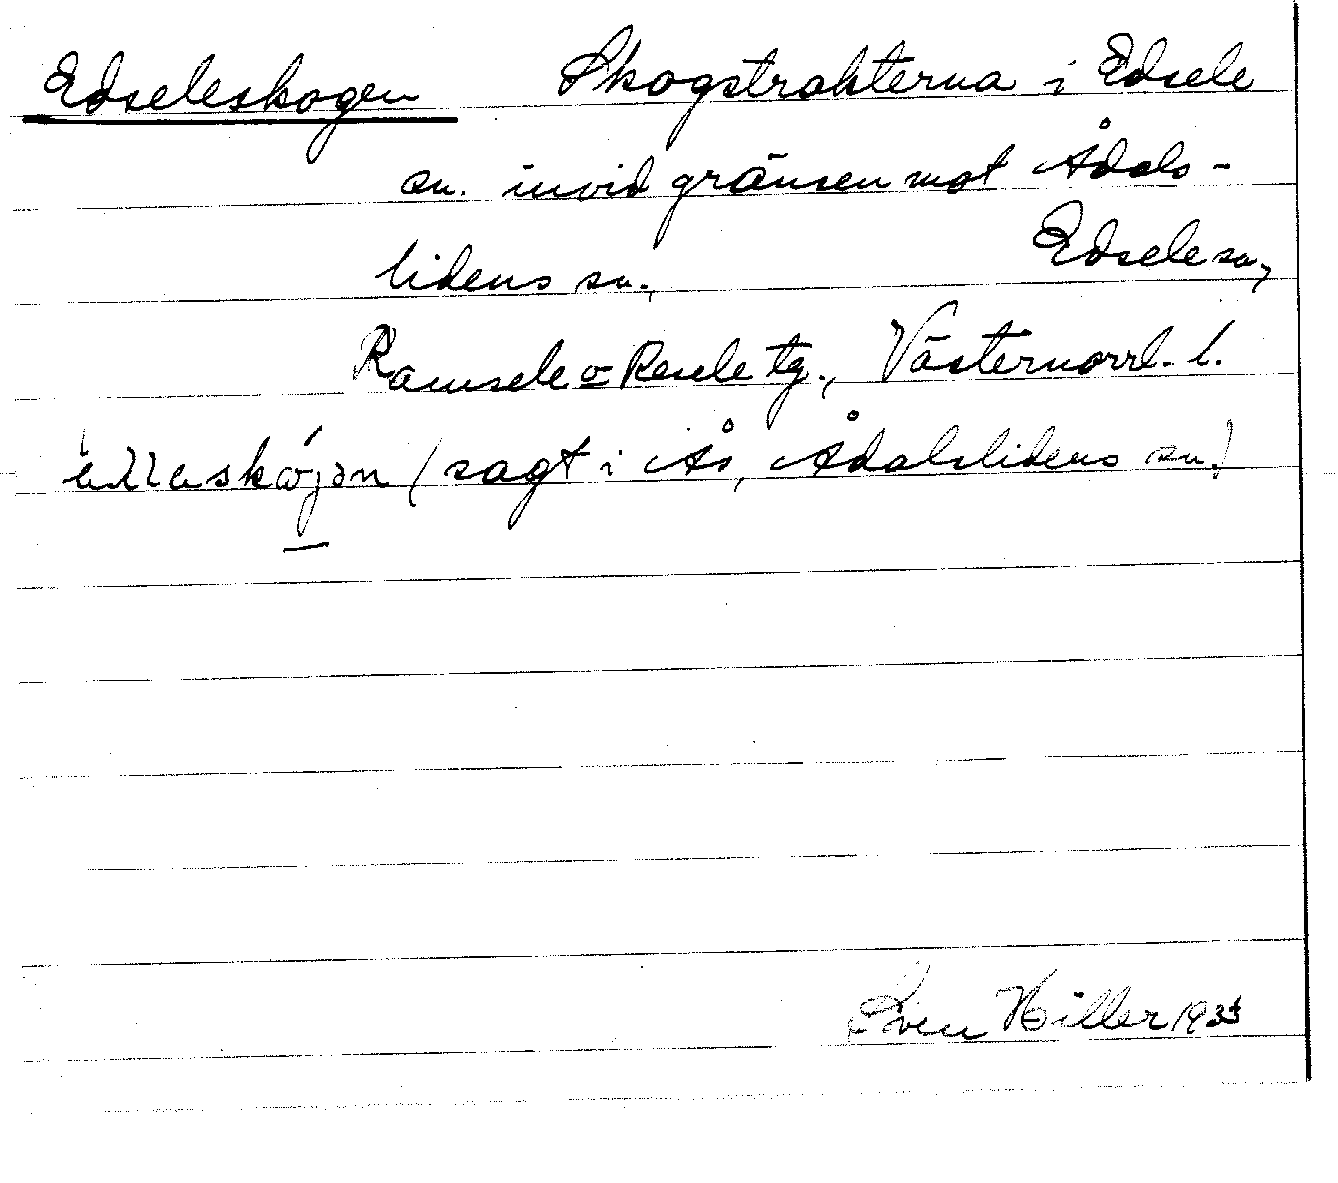 Edseleskogen Skogstrakterna i Edsele
sn. invid gränsen mot Ådals-
lidens sn., Edsele sn,
Ramsele o Resele tg., Västernorrl. l.
(sagt i Ås, Ådalslidens sn.)
Sven Hiller 1933